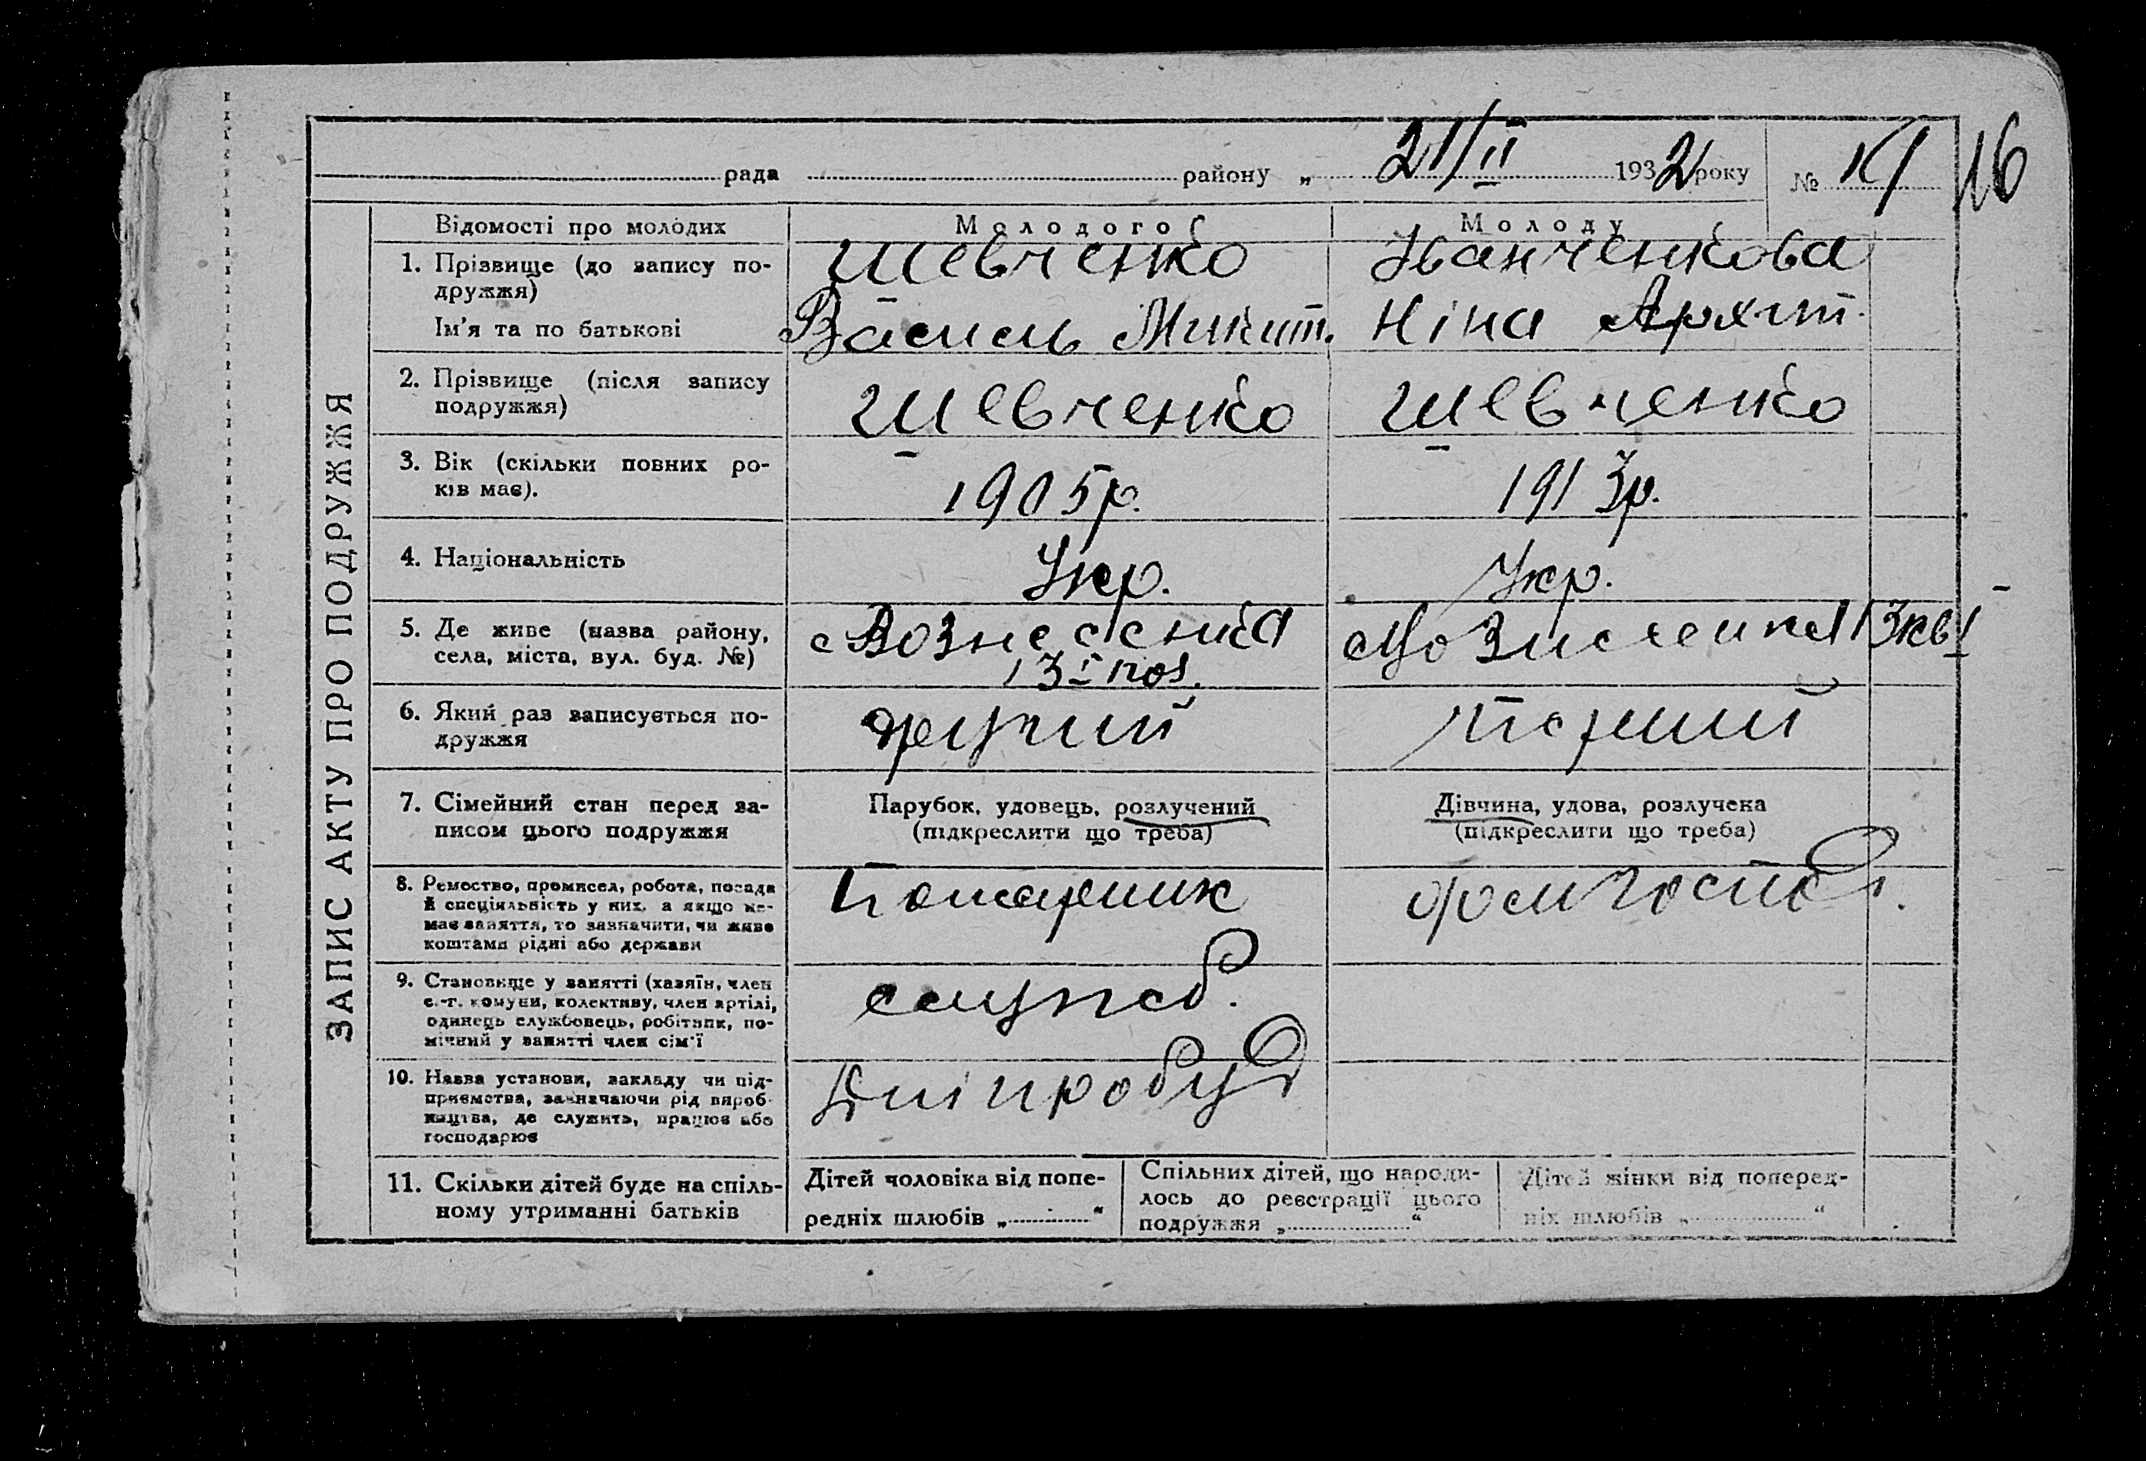 рада району „ 21/II 1932 року № 16
ЗАПИС АКТУ ПРО ПОДРУЖЖЯ
Відомості про молодих Молодого Молоду
1. Прізвище (до запису по-
дружжя)
Шевченко Іванченкова
Ім'я та по батькові
Василь Микит. Ніна Архип.
2. Прізвище (після запису
подружжя)
Шевченко Шевченко
3. Вік (скільки повних ро-
ків має).
1905р. 1913р.
4. Національність
Укр. Укр.
5. Де живе (назва району,
села, міста, вул. буд. №)
13
6. Який раз записується по-
дружжя
другий перший
7. Сімейний стан перед за-
писом цього подружжя
Парубок, удовець, розлучений
(підкреслити що треба)
Дівчина, удова, розлучена
(підкреслити що треба)
8. Ремество, промисел, робота, посада
й спеціяльність у них, а якщо не-
має заняття, то зазначити, чи живе
коштами рідні або держави
Пожарник
9. Становище у занятті (хазяїн, член
с.-г. комуни, колективу, член артілі,
одинець службовець, робітник, по-
мічний у занятті член сім'ї
служб.
10. Назва установи, закладу чи під-
приємства, зазначаючи рід вироб-
ництва, де служить, працює або
господарює
Дніпробуд
11. Скільки дітей буде на спіль-
ному утриманні батьків
Дітей чоловіка від попе-
редніх шлюбів „ “
Спільних дітей, що народи-
лось до реєстрації цього
подружжя „ “
Дітей жінки від поперед-
ніх шлюбів „ “